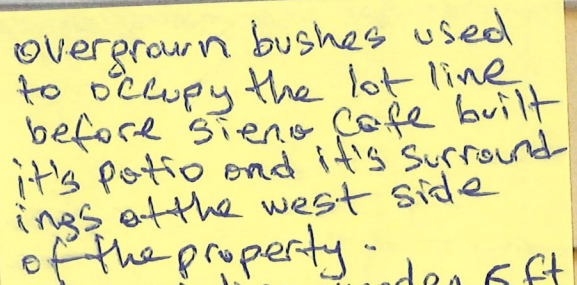 overgrown bushes used
to occupy the lot line
before siena Cafe built
it's patio and it's surround-
ings at the west side
of the property.
5 ft